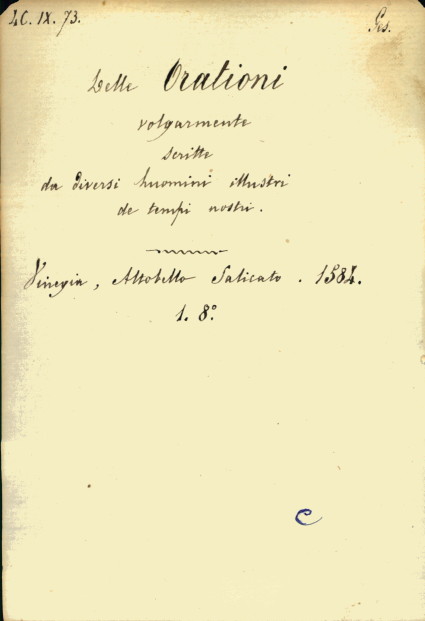 IC. IX. 73.
Ges.
Delle Orationi
volgarmente
scritte
da diversi huomini illustri
de tempi nostri.
Vinegia, Altobello Salicato. 1584.
1. 8°.
C